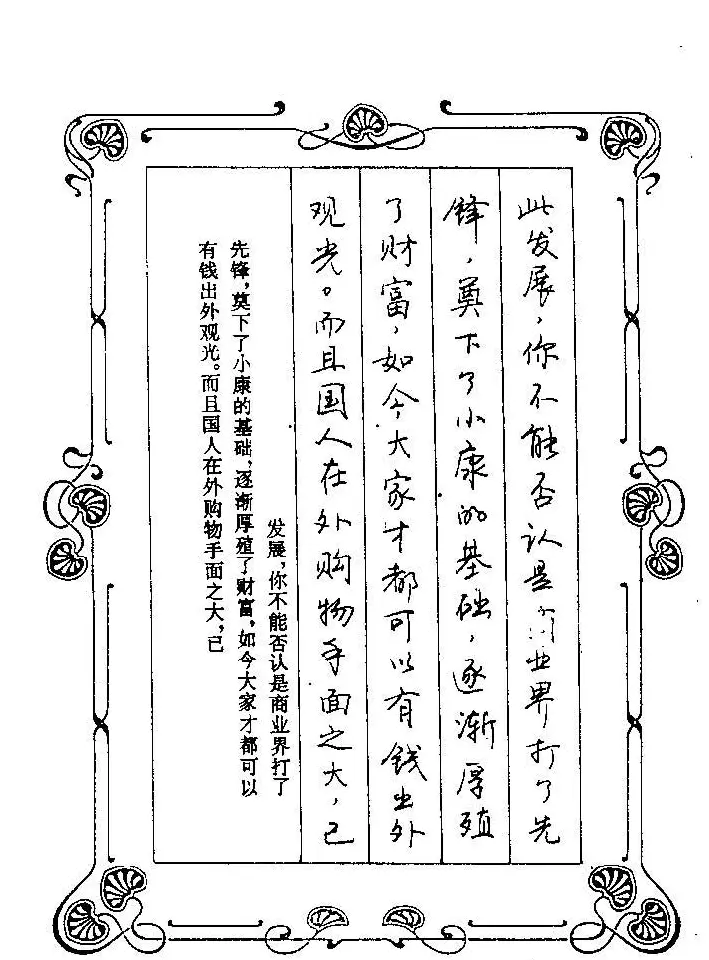 此发展，你不能否认是商业界打了先
锋，奠下了小康的基础，逐渐厚殖
了财富，如今大家才都可以有钱出外
观光。而且国人在外购物手面之大，已
发展，你不能否认是商业界打了
先锋，奠下了小康的基础，逐渐厚殖了财富，如今大家才都可以
有钱出外观光。而且国人在外购物手面之大，已